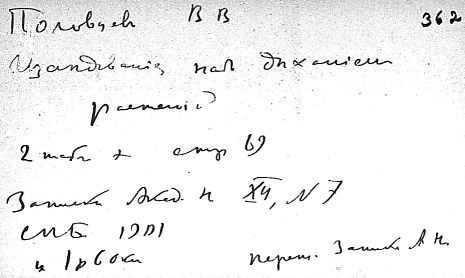 Половцев В В 362
Изследованія надъ дыханіем
растеній
2 табл + стр 69
Записки Акад. Н XII, N 7
СПБ 1901
ц 1р 60 к
Записк А Н.